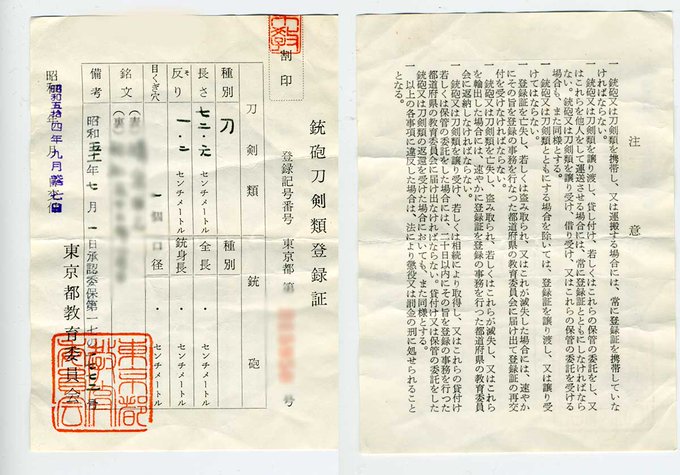 割印
銃砲刀剣類登録証
登録記号番号 東京都 第 号
刀剣類
銃砲
種別 刀
種別
長さ 七二・九 センチメートル
全長 ・ センチメートル
反り 一・二 センチメートル
銃身長 ・ センチメートル
目くぎ穴 一個
口径 ・ センチメートル
銘文
(表)
(裏)
備考 昭和五十一年七月一日承認委保第一七の 号
昭和五拾四年九月 七日
東京都教育委員会
注意
一 銃砲又は刀剣類を携帯し、又は運搬する場合には、常に登録証を携帯していな
ければならない。
一 銃砲又は刀剣類を譲り渡し、貸し付け、若しくはこれらの保管の委託をし、又
はこれらを他人をして運送させる場合には、常に登録証とともにしなければなら
ない。銃砲又は刀剣類を譲り受け、借り受け、又はこれらの保管の委託を受ける
場合も、また同様とする。
一 銃砲又は刀剣類とともにする場合を除いては、登録証を譲り渡し、又は譲り受
けてはならない。
一 登録証を亡失し、若しくは盗み取られ、又はこれが滅失した場合には、速やか
にその旨を登録の事務を行なつた都道府県の教育委員会に届け出て登録証の再交
付を受けなければならない。
一 銃砲又は刀剣類を亡失し、盗み取られ、若しくはこれらが滅失し、又はこれら
を輸出した場合には、速やかに登録証を登録の事務を行つた都道府県の教育委員
会に返納しなければならない。
一 銃砲又は刀剣類を譲り受け、若しくは相続により取得し、又はこれらの貸付け
若しくは保管の委託をした場合には、二十日以内にその旨を登録の事務を行つた
都道府県の教育委員会に届け出なければならない。貸付け又は保管の委託をした
銃砲又は刀剣類の返還を受けた場合においても、また同様とする。
一 以上の各事項に違反した場合は、法により懲役又は罰金の刑に処せられること
となる。